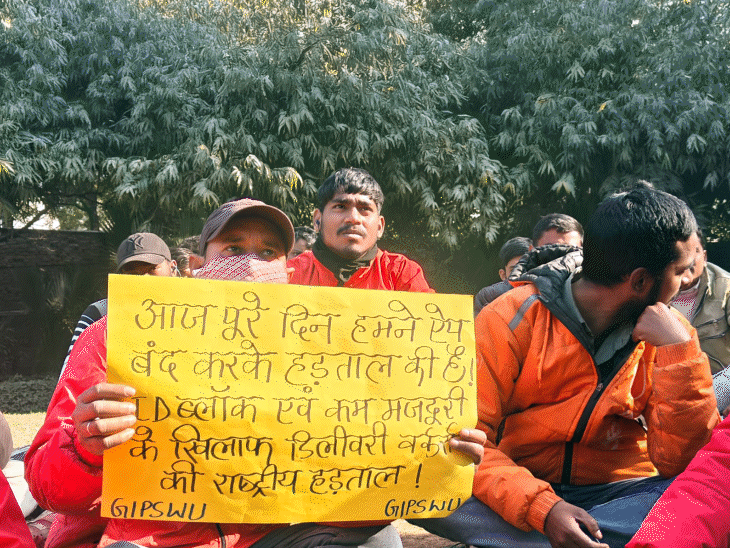 आज पूरे दिन हमने ऐप
बंद करके हड़ताल की है!
ID ब्लॉक एवं कम मजदूरी
के खिलाफ डिलीवरी वर्कर्स
की राष्ट्रीय हड़ताल !
GIPSWU GIPSWU